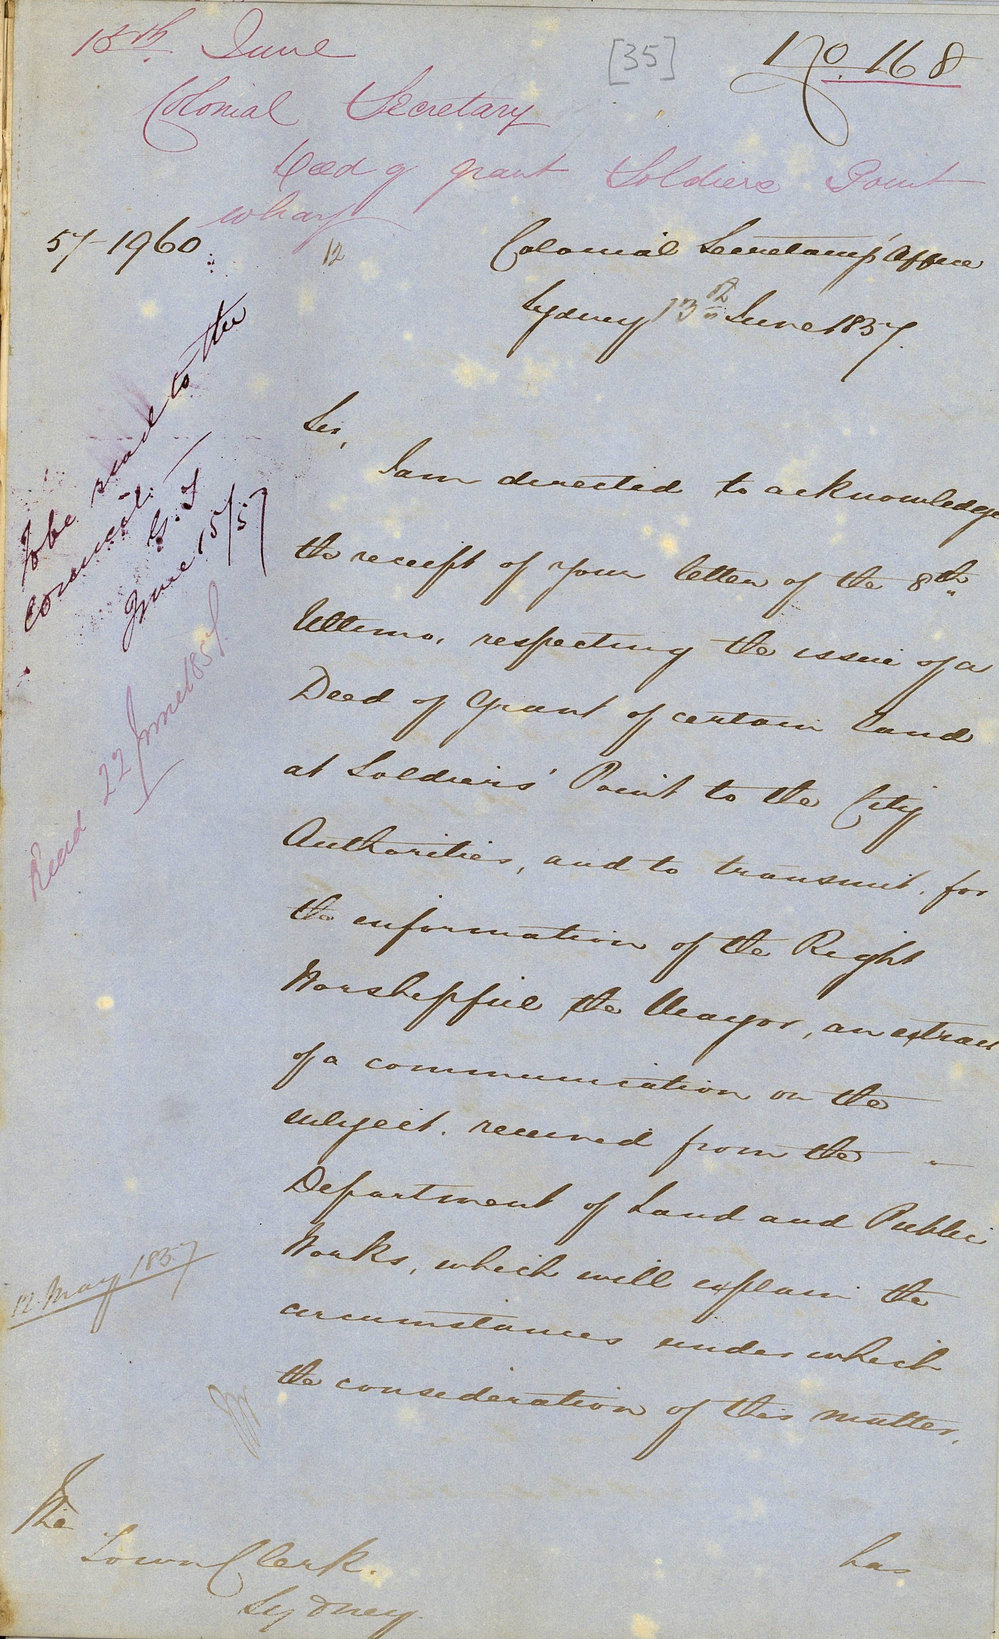 15th. June
[35]
No. 168
Colonial Secretary
Deed of grant Soldiers Point
wharf
57-1960
12
Colonial Secretary's Office
Sydney 13th June 1857.
To be read to the
Council.
G. T
June 15/57
Read 22 June 1857.
Sir,
I am directed to acknowledge
the receipt of your letter of the 8th
Ultimo, respecting the issue of a
Deed of Grant of certain land
at Soldiers' Point to the City
Authorities, and to transmit, for
the information of the Right
Worshipful the Mayor, an extract
of a communication on the
subject, received from the
Department of Land and Public
Works, which will explain the
circumstances under which
the consideration of this matter,
12 May 1857
The
Town Clerk.
Sydney.
has